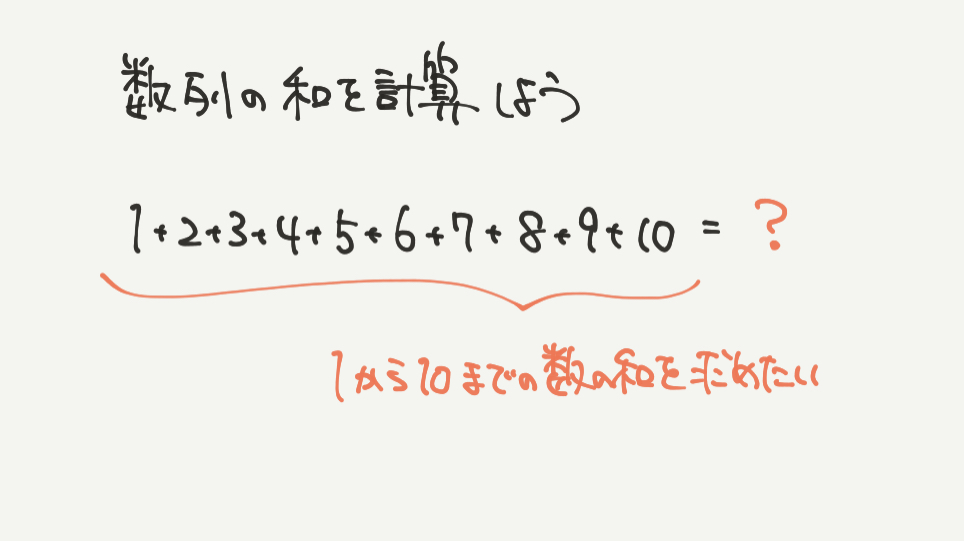 数列の和を計算しよう
1+2+3+4+5+6+7+8+9+10 = ?
1から10までの数の和を求めたい